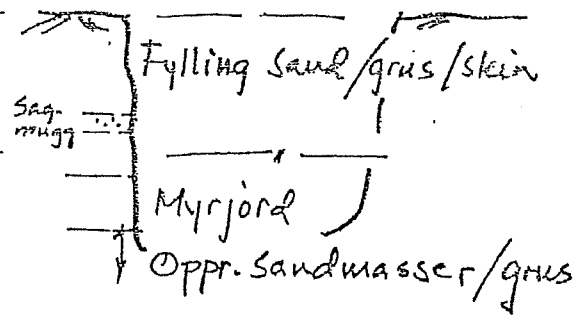 Fylling sand/grus/stein
Sag-
mugg
Myrjord
Oppr. sandmasser/grus